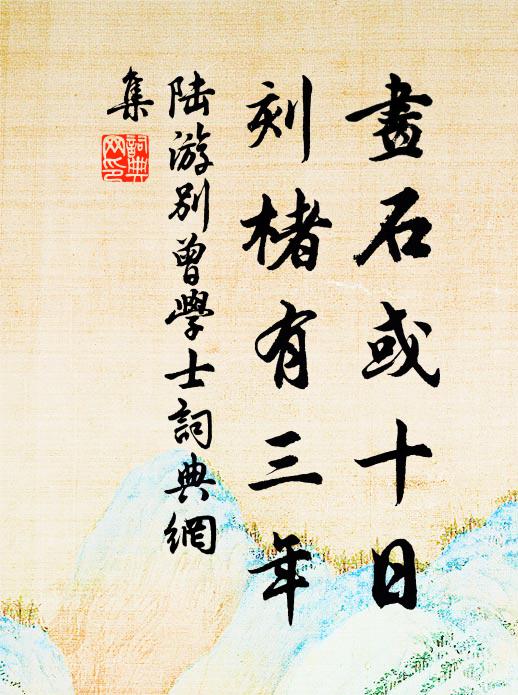 畫石或十日
刻楮有三年
陸游別曾學士詞典網
集
詞典
网印